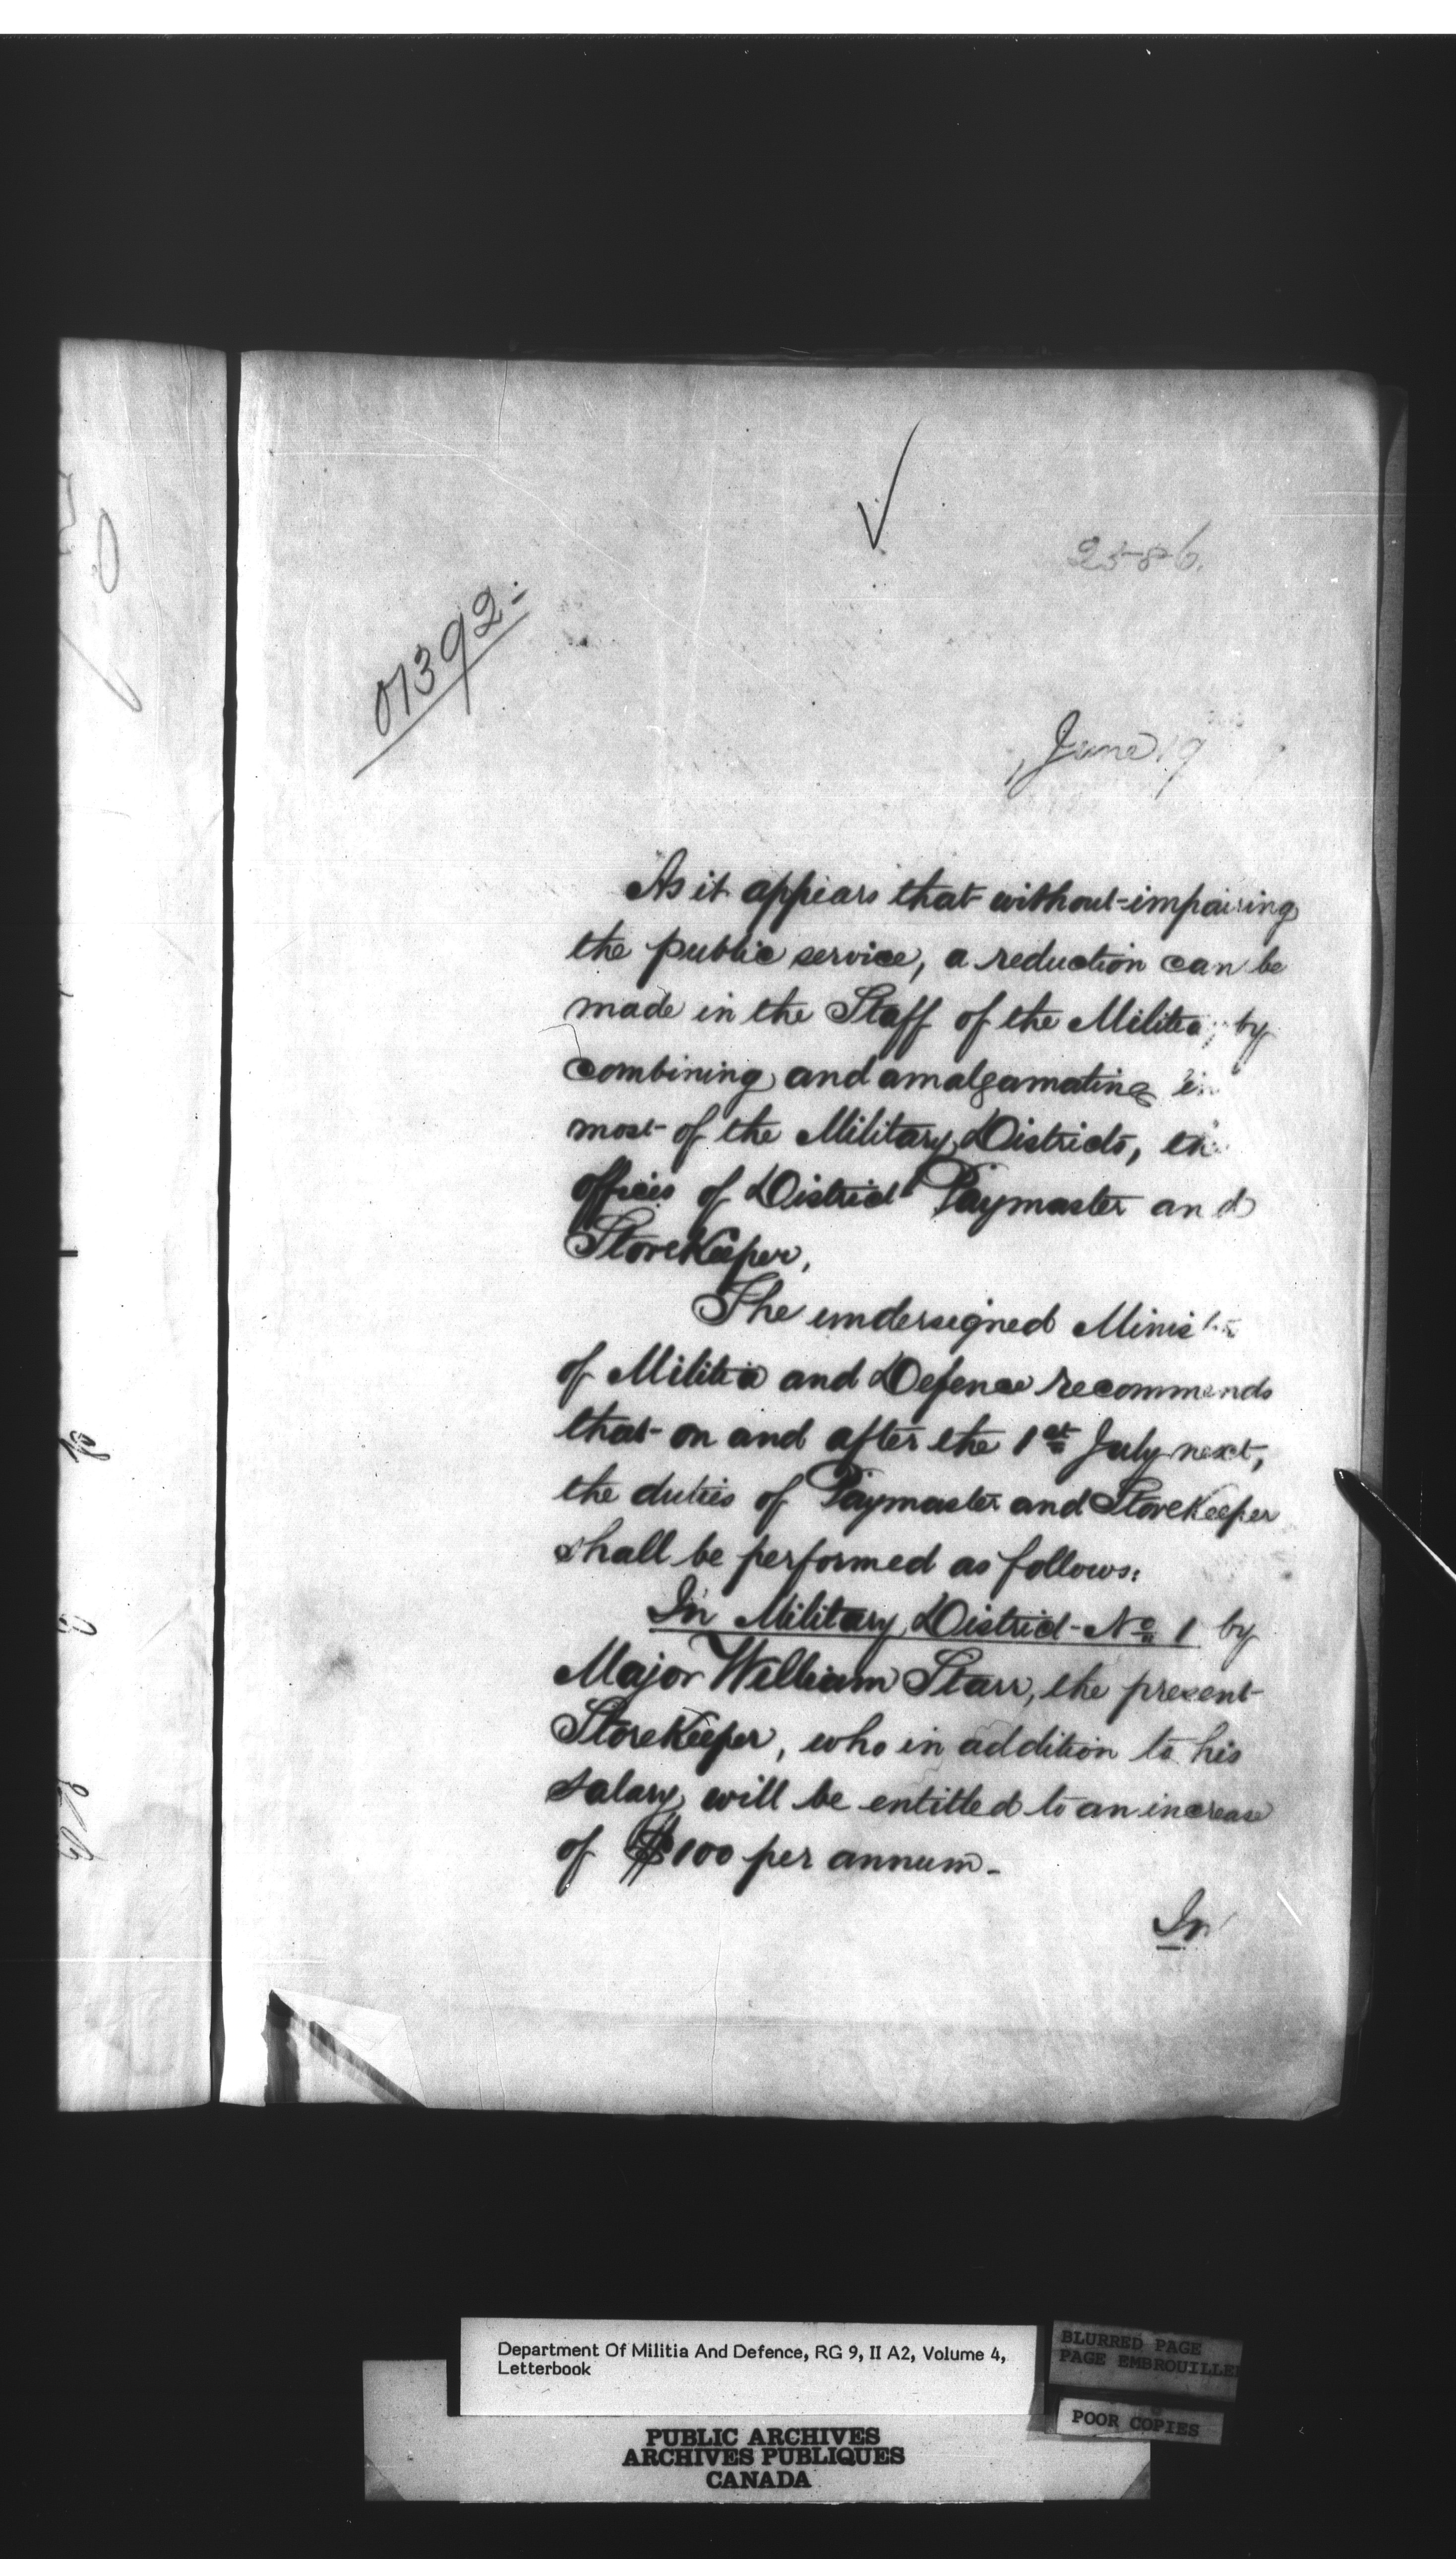 2586.
01392
June 19
As it appears that without impairing
the public service, a reduction can be
made in the Staff of the Militia, by
combining and amalgamating in
most of the Military Districts, the
offices of District Paymaster and
StoreKeeper,
The undersigned Minister
of Militia and Defence recommends
that on and after the 1st July next,
the duties of Paymaster and StoreKeeper
shall be performed as follows:
In Military District No 1 by
Major William Starr, the present
StoreKeeper, who in addition to his
salary will be entitled to an increase
of $100 per annum-
In
Department Of Militia And Defence, RG 9, II A2, Volume 4,
Letterbook
BLURRED PAGE
PAGE EMBROUILLE
POOR COPIES
PUBLIC ARCHIVES
ARCHIVES PUBLIQUES
CANADA